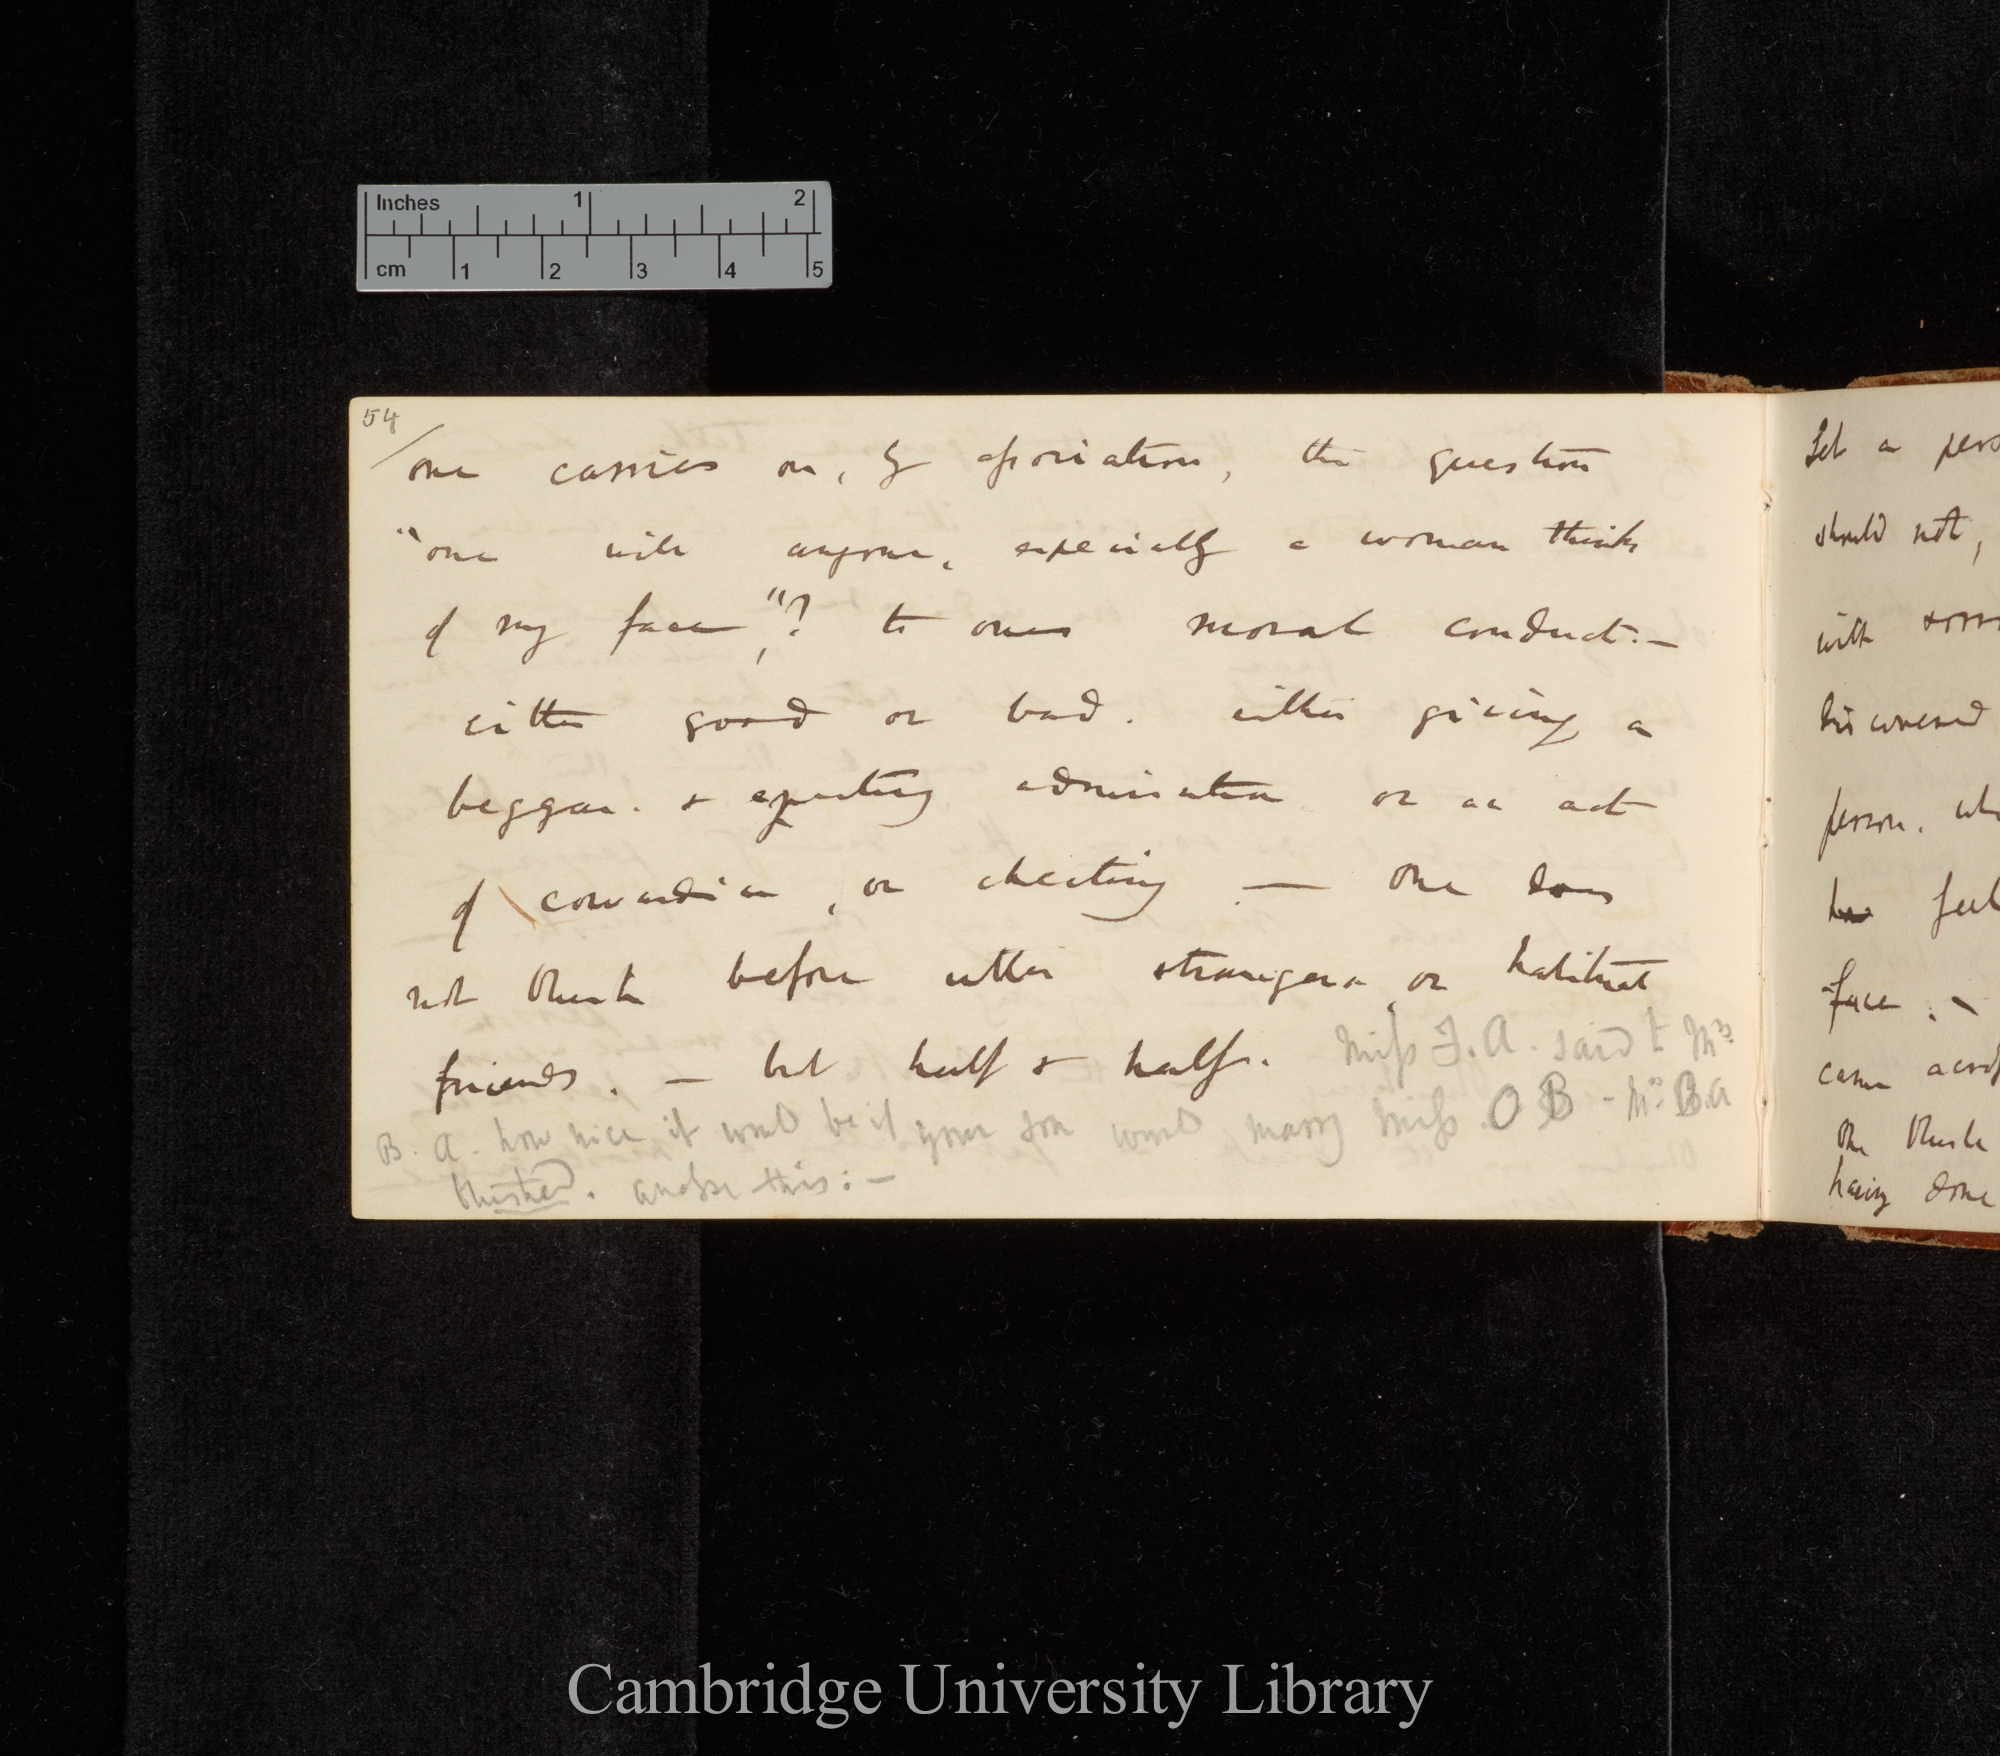 Inches 1 2
cm 1 2 3 4 5
54
one carries on, by association, the question
"one will anyone, especially a woman think
of my face,"? to ones moral conduct.—
either good or bad. either giving a
beggar. & expecting admiration or an act
of cowardice, or cheating — one does
not blush before utter stranger, or habitual
friends. — but half & half. Miss F. A. said to Mrs
B. A. how nice it would be if your son would marry Miss. O B — Mrs. B. A
blushed. analyse this: —
Let a pers
should not,
with
discovered
person. wh
has feel
face. —
came
one blush
having done
Cambridge University Library